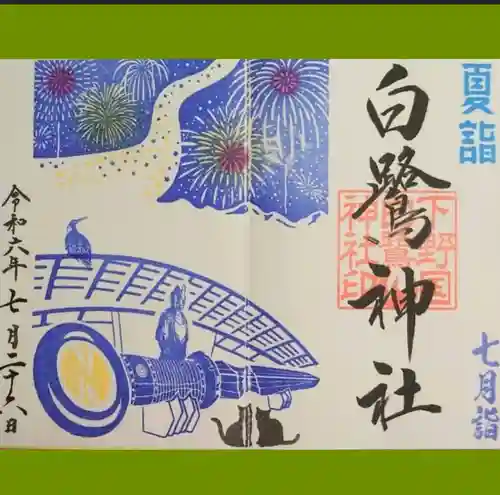 夏詣
白鷺神社
下野国
白鷺
神社印
七月詣
令和六年七月二十六日